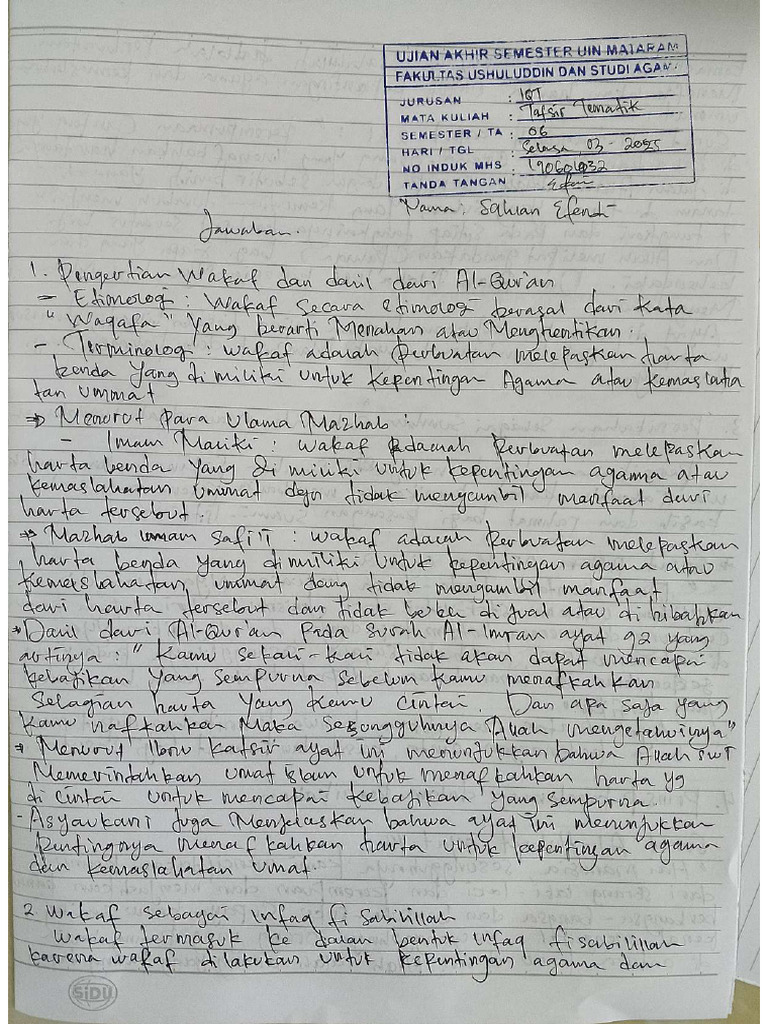 UJIAN AKHIR SEMESTER UIN MATARAM
FAKULTAS USHULUDDIN DAN STUDI AGAM
JURUSAN : IQT
MATA KULIAH : Tafsir Tematik
SEMESTER / TA : 06
HARI / TGL : Selasa 03 - 2025
NO INDUK MHS : 190601032
TANDA TANGAN
Nama : Sahian Efendi
Jawaban.
1. Pengertian Wakaf dan dalil dari Al-Qur'an
- Etimologi : Wakaf secara etimologi berasal dari kata
"Waqafa" yang berarti Menahan atau Menghentikan.
- Terminologi : wakaf adalah perbuatan melepaskan harta
benda yang di miliki untuk kepentingan Agama atau kemaslaha
tan ummat
⇒ Menurut Para Ulama Mazhab :
- Imam Maliki : wakaf adalah perbuatan melepaskan
harta benda yang di miliki untuk kepentingan agama atau
kemaslahatan ummat dgn tidak mengambil manfaat dari
harta tersebut.
⇒ Mazhab imam Safi'i : wakaf adalah perbuatan melepaskan
harta benda yang dimiliki untuk kepentingan agama atau
kemeslahatan ummat deng tidak mengambil manfaat
dari harta tersebut dan tidak boleh di jual atau di hibahkan
⇒ Dalil dari Al-Qur'an pada surah Al-Imran ayat 92 yang
artinya : "Kamu sekali-kali tidak akan dapat mencapai
kebajikan yang sempurna sebelum kamu menafkahkan
Sebagian harta yang kamu cintai. Dan apa saja yang
kamu nafkahkan maka sesungguhnya Allah mengetahuinya"
⇒ Menurut Ibnu Katsir ayat ini menunjukkan bahwa Allah swt
Memerintahkan umat islam untuk menafkahkan harta yg
di cintai untuk mencapai kebajikan yang sempurna.
- Asyaukani juga Menjelaskan bahwa ayat ini menunjukkan
pentingnya menafkahkan harta untuk kepentingan agama
dan kemaslahatan umat.
2. Wakaf sebagai infaq fi sabilillah
Wakaf termasuk ke dalam bentuk infaq fisabilillah
karena wakaf dilakukan untuk kepentingan agama dan
SIDU